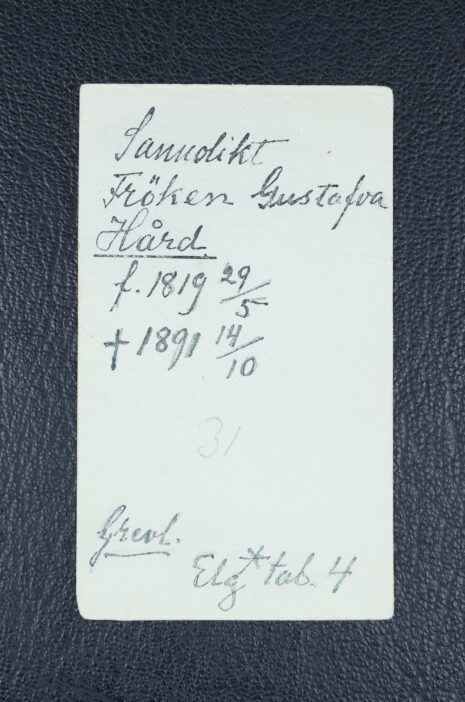 Sannolikt
Fröken Gustafva
Hård
f. 1819 29/5
† 1891 14/10
31
Grevl.
Elg* tab. 4